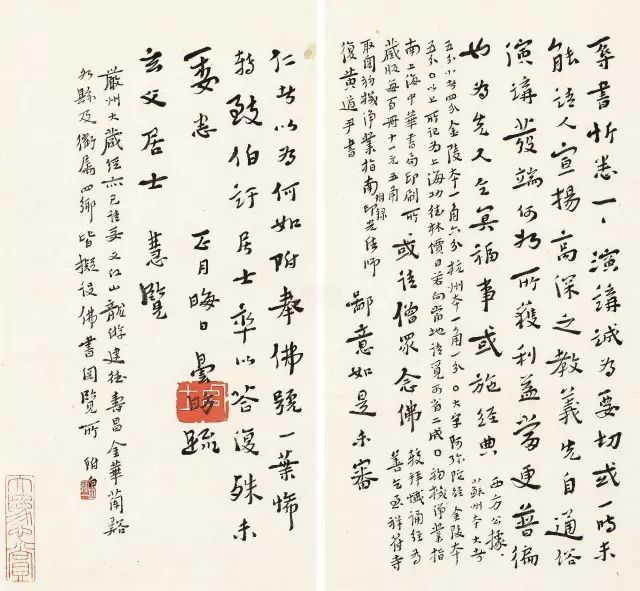 辱書忻悉一一演講誠為要切或一時未
能請人宣揚高深之教義先自通俗
演講發端何如所獲利益當更普徧
也為先人之冥福事或施經典
西方公據、
蘇州本大者
五分小者四分金陵本一角六分杭州本一角一分〇大字阿弥陀經金陵本
五分〇以上所記為上海功德林價目若向當地請覓可省二成〇初機淨業指
南上海中華書局印刷所
藏版每百冊十一元五角
或請僧眾念佛
較拜懺誦經為
善乞函祥符寺
取閱初機淨業指南附錄印光法師
復黃書
鄙意如是未審
仁者以為何如附奉佛號一葉希
轉致伯訏居士率以答復殊未
委悉 正月晦日曇昉疏
玄父居士 慧覽
嚴州大藏經亦已請妥又江山龍游建德壽昌金華蘭谿
各縣及衢屬四鄉皆擬設佛書閱覽所 附白